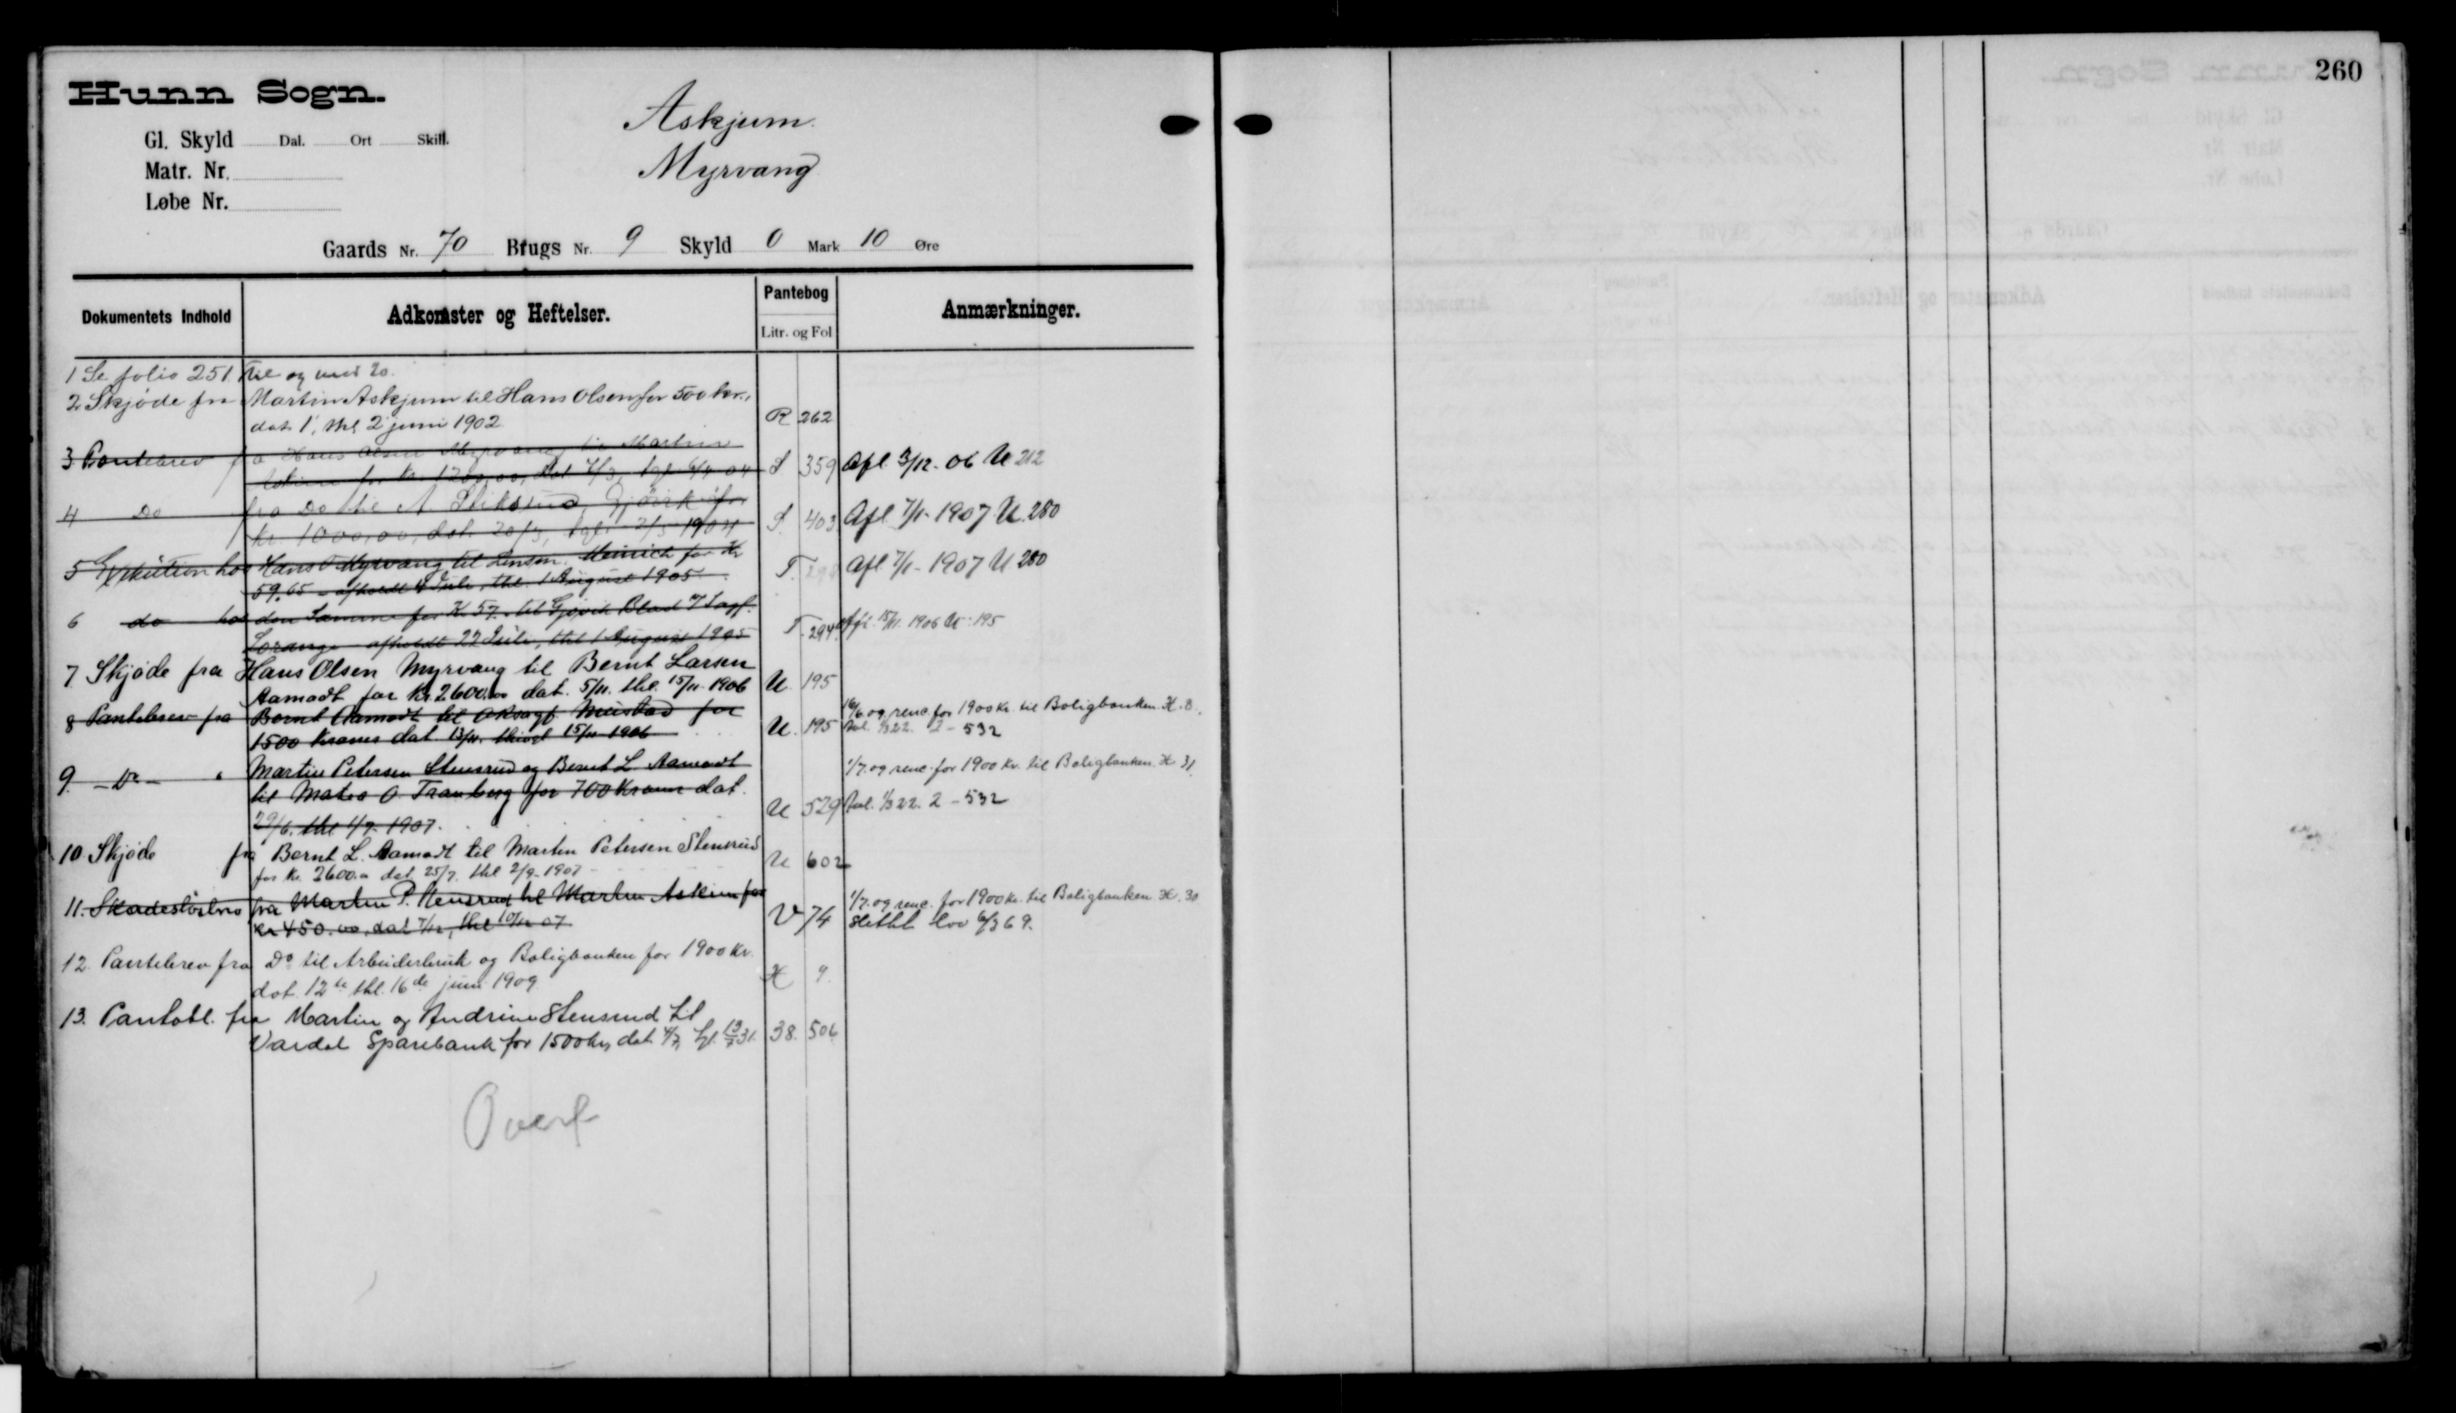 260
Hunn Sogn.
Gl. Skyld Dal. Ort Skill.
Matr. Nr.
Løbe Nr.
Askjum
Myrvang
Gaards Nr. 70 Brugs Nr. 9 Skyld 0 Mark 10 Øre
Dokumentets Indhold Adkomster og Heftelser. Pantebog Anmærkninger.
Litr. og Fol
1 Se folio 251 til og med 20.
2 Skjøde fra Martin Askjum til Hans Olsen for 500 kr.,
dat. 1, thl. 2 juni 1902 R 262
3. Pantebrev fra Hans Olsen Myrvang til Martin
for kr. 1200,00, dat 4/3, tgl. 6/4 04 S 359 Afl 3/12-06 U 212
4 Do fra Do til A Gjøvik for
kr. 1000,00, dat. 20/3, tgl. 2/5 1904 S. 403 Afl 7/1-1907 U. 280
5 Exekution hos Hans O Myrvang til Lensm. for Kr
59.65 afholdt 4 Juli, thl. 1 August 1905 T. Afl 7/1-1907 U 280
6 do hos den Samme for K 57. til Gjøvik Blad v/ Sagf.
Lorange afholdt 22 Juli, thl 1 August 1905 T. 294 Afl. 15/11. 1906 U. 195
7. Skjøde fra Hans Olsen Myrvang til Bernt Larsen
Aamodt for Kr. 2600.00 dat. 5/11. thl. 15/11-1906 U. 195
8 Pantebrev fra Bernt Aamodt til O.R.sagf. Mustad for 16/6. og renc. for 1900 kr. til Boligbanken. H. 8.
1500 Kroner dat. 13/11. thingl 15/11 1906 U. 195 Avl. 1/3 22. 2-532
9. - Do - " Martin Petersen Stensrud og Bernt L. Aamodt 1/7. og renc. for 1900 Kr. til Boligbanken. H. 31.
til O. Tranberg for 700 Kroner dat.
29/6. thl 1/7-1907. U 529 Avl. 1/3 22. 2-532
10 Skjøde fra Bernt L. Aamodt til Martin Petersen Stensrud
for Kr. 2600.00 dat. 25/7. thl 2/9-1907 U 602
11. Skadesløsbrev fra Martin P. Stensrud til Martin Askim for 1/7. og renc. for 1900 kr. til Boligbanken H. 30
kr 450.00, dat 7/12, thl 10/12 07 V 74 Slettet lov 6/3 69.
12. Pantebrev fra Do til Arbeiderbruk og Boligbanken for 1900 kr.
dat. 12te thl. 16de juni 1909 H 9.
13. Pantobl. fra Martin og Andrine Stensrud til
Vardal Sparebank for 1500 kr, dat 4/7, tgl. 13/7 31. 38. 506
Overf